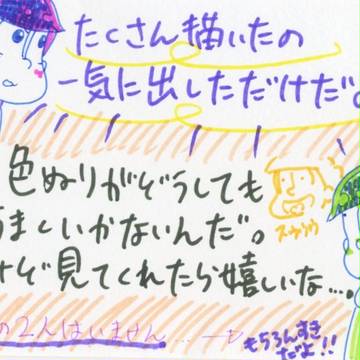 たくさん描いたの
一気に出しただけだ。
色ぬりがどうしても
うまくいかないんだ。
けど見てくれたら嬉しいな…。
スウソウ
の2人はいません…
もちろんすき
だよ!!